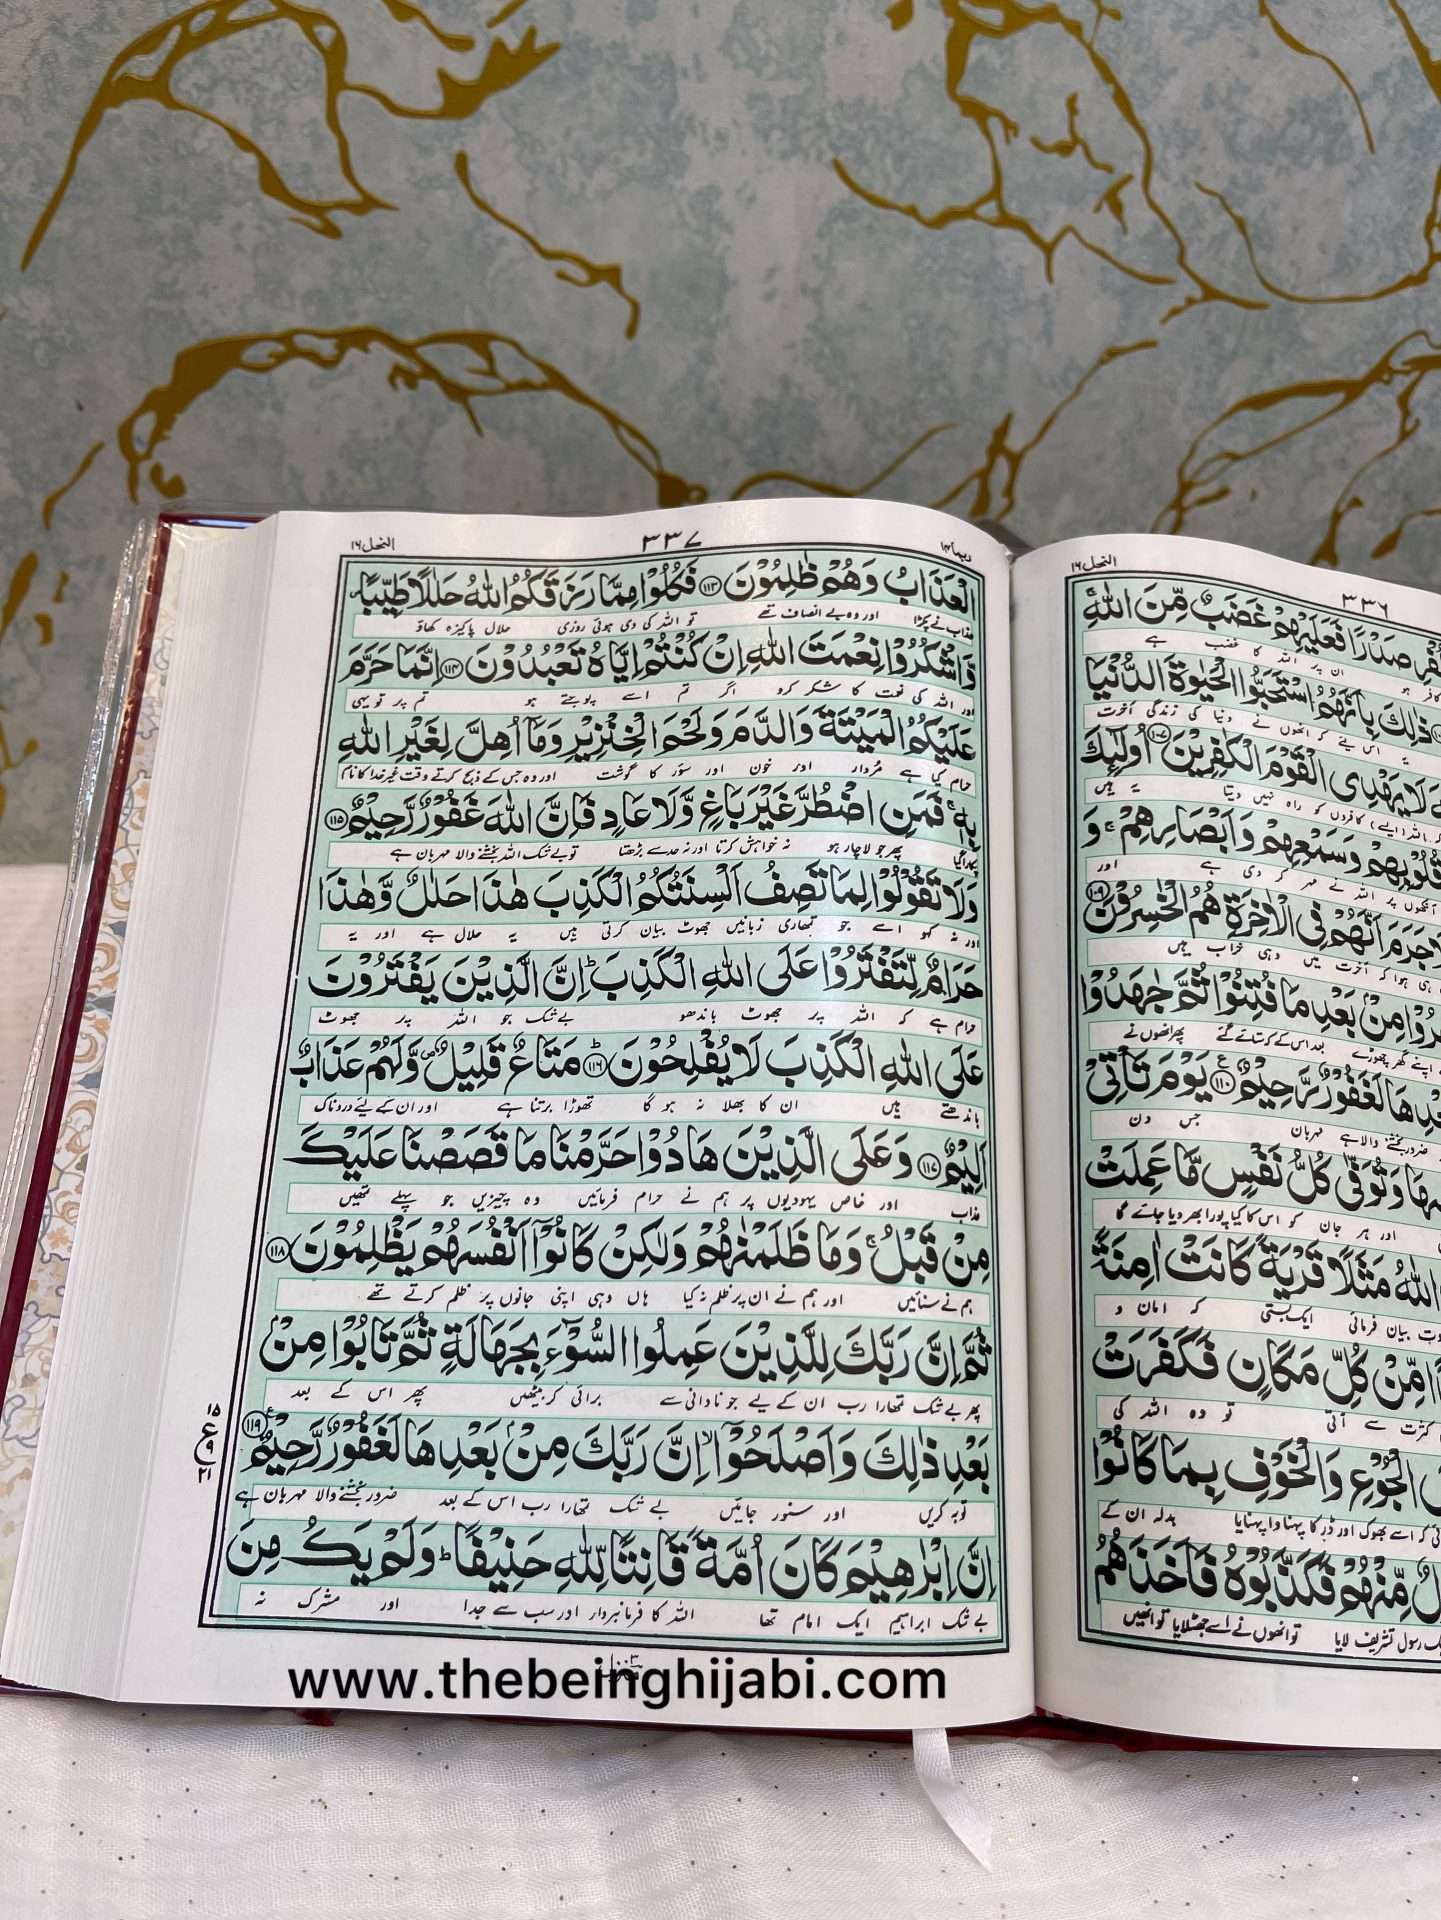 النحل ۱۶
۳۳۷
ربما ۱۴
الْعَذَابُ وَهُمْ ظٰلِمُوْنَ ۝۱۱۳ فَكُلُوْا مِمَّا رَزَقَكُمُ اللّٰهُ حَلٰلًا طَيِّبًا
عذاب نے پکڑا اور وہ بے انصاف تھے تو اللہ کی دی ہوئی روزی حلال پاکیزہ کھاؤ
وَّاشْكُرُوْا نِعْمَتَ اللّٰهِ اِنْ كُنْتُمْ اِيَّاهُ تَعْبُدُوْنَ ۝۱۱۴ اِنَّمَا حَرَّمَ
اور اللہ کی نعمت کا شکر کرو اگر تم اسے پوجتے ہو تم پر تو یہی
عَلَيْكُمُ الْمَيْتَةَ وَالدَّمَ وَلَحْمَ الْخِنْزِيْرِ وَمَآ اُهِلَّ لِغَيْرِ اللّٰهِ
حرام کیا ہے مُردار اور خون اور سؤر کا گوشت اور وہ جس کے ذبح کرتے وقت غیر خدا کا نام
بِهٖۚ فَمَنِ اضْطُرَّ غَيْرَ بَاغٍ وَّلَا عَادٍ فَاِنَّ اللّٰهَ غَفُوْرٌ رَّحِيْمٌ ۝۱۱۵
پکارا گیا پھر جو لاچار ہو نہ خواہش کرتا اور نہ حد سے بڑھتا تو بے شک اللہ بخشنے والا مہربان ہے
وَلَا تَقُوْلُوْا لِمَا تَصِفُ اَلْسِنَتُكُمُ الْكَذِبَ هٰذَا حَلٰلٌ وَّهٰذَا
اور نہ کہو اسے جو تمھاری زبانیں جھوٹ بیان کرتی ہیں یہ حلال ہے اور یہ
حَرَامٌ لِّتَفْتَرُوْا عَلَى اللّٰهِ الْكَذِبَؕ اِنَّ الَّذِيْنَ يَفْتَرُوْنَ
حرام ہے کہ اللہ پر جھوٹ باندھو بے شک جو اللہ پر جھوٹ
عَلَى اللّٰهِ الْكَذِبَ لَا يُفْلِحُوْنَ ۝۱۱۶ؕ مَتَاعٌ قَلِيْلٌ۪ وَّلَهُمْ عَذَابٌ
باندھتے ہیں ان کا بھلا نہ ہو گا تھوڑا برتنا ہے اور ان کے لیئے دردناک
اَلِيْمٌ ۝۱۱۷ وَعَلَى الَّذِيْنَ هَادُوْا حَرَّمْنَا مَا قَصَصْنَا عَلَيْكَ
عذاب اور خاص یہودیوں پر ہم نے حرام فرمائیں وہ چیزیں جو پہلے تمھیں
مِنْ قَبْلُۚ وَمَا ظَلَمْنٰهُمْ وَلٰكِنْ كَانُوْٓا اَنْفُسَهُمْ يَظْلِمُوْنَ ۝۱۱۸
ہم نے سنائیں اور ہم نے ان پر ظلم نہ کیا ہاں وہی اپنی جانوں پر ظلم کرتے تھے
ثُمَّ اِنَّ رَبَّكَ لِلَّذِيْنَ عَمِلُوا السُّوْٓءَ بِجَهَالَةٍ ثُمَّ تَابُوْا مِنْۢ
پھر بے شک تمھارا رب ان کے لیے جو نادانی سے برائی کر بیٹھیں پھر اس کے بعد
بَعْدِ ذٰلِكَ وَاَصْلَحُوْٓاۙ اِنَّ رَبَّكَ مِنْۢ بَعْدِهَا لَغَفُوْرٌ رَّحِيْمٌ ۝۱۱۹ع
توبہ کریں اور سنور جائیں بے شک تمھارا رب اس کے بعد ضرور بخشنے والا مہربان ہے
۱۵
ع
۹
۲۱
اِنَّ اِبْرٰهِيْمَ كَانَ اُمَّةً قَانِتًا لِّلّٰهِ حَنِيْفًاؕ وَلَمْ يَكُ مِنَ
بے شک ابراہیم ایک امام تھا اللہ کا فرمانبردار اور سب سے جدا اور مشرک نہ
منزل ۳
www.thebeinghijabi.com
النحل ۱۶
۳۳۶
صَدْرًا فَعَلَيْهِمْ غَضَبٌ مِّنَ اللّٰهِۚ
کافر ہو ان پر اللہ کا غضب ہے
ذٰلِكَ بِاَنَّهُمُ اسْتَحَبُّوا الْحَيٰوةَ الدُّنْيَا
یہ اس لیئے کہ انھوں نے دنیا کی زندگی آخرت
لَا يَهْدِى الْقَوْمَ الْكٰفِرِيْنَ ۝۱۰۷ اُولٰٓئِكَ
اللہ (ایسے) کافروں کو راہ نہیں دیتا یہ ہیں
قُلُوْبِهِمْ وَسَمْعِهِمْ وَاَبْصَارِهِمْۚ وَ
آنکھوں پر اللہ نے مہر کر دی ہے اور
لَا جَرَمَ اَنَّهُمْ فِى الْاٰخِرَةِ هُمُ الْخٰسِرُوْنَ ۝۱۰۹
ہی ہوا کہ آخرت میں وہی خراب ہیں
مِنْۢ بَعْدِ مَا فُتِنُوْا ثُمَّ جٰهَدُوْا
اپنے گھر چھوڑے بعد اس کے کہ ستائے گئے پھر انھوں نے
لَغَفُوْرٌ رَّحِيْمٌ ۝۱۱۰ع يَوْمَ تَاْتِىْ
ضرور بخشنے والا ہے مہربان جس دن
وَتُوَفّٰى كُلُّ نَفْسٍ مَّا عَمِلَتْ
اور ہر جان کو اس کا کیا پورا بھر دیا جائے گا
اللّٰهُ مَثَلًا قَرْيَةً كَانَتْ اٰمِنَةً
بیان فرمائی ایک بستی کہ امان و
مِّنْ كُلِّ مَكَانٍ فَكَفَرَتْ
کثرت سے آتی تو وہ اللہ کی
الْجُوْعِ وَالْخَوْفِ بِمَا كَانُوْا
کہ اسے بھوک اور ڈر کا پہناوا پہنایا بدلہ ان کے
مِّنْهُمْ فَكَذَّبُوْهُ فَاَخَذَهُمُ
رسول تشریف لایا تو انھوں نے اسے جھٹلایا تو انھیں